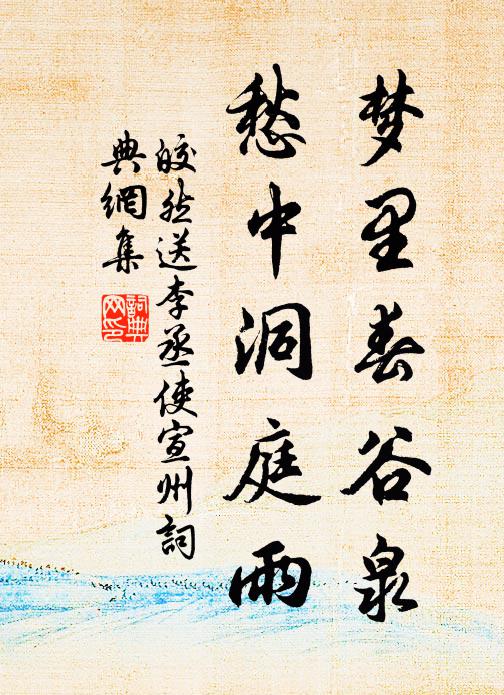 梦里春谷泉
愁中洞庭雨
皎然送李丞使宣州詞
典網集
詞典
网印